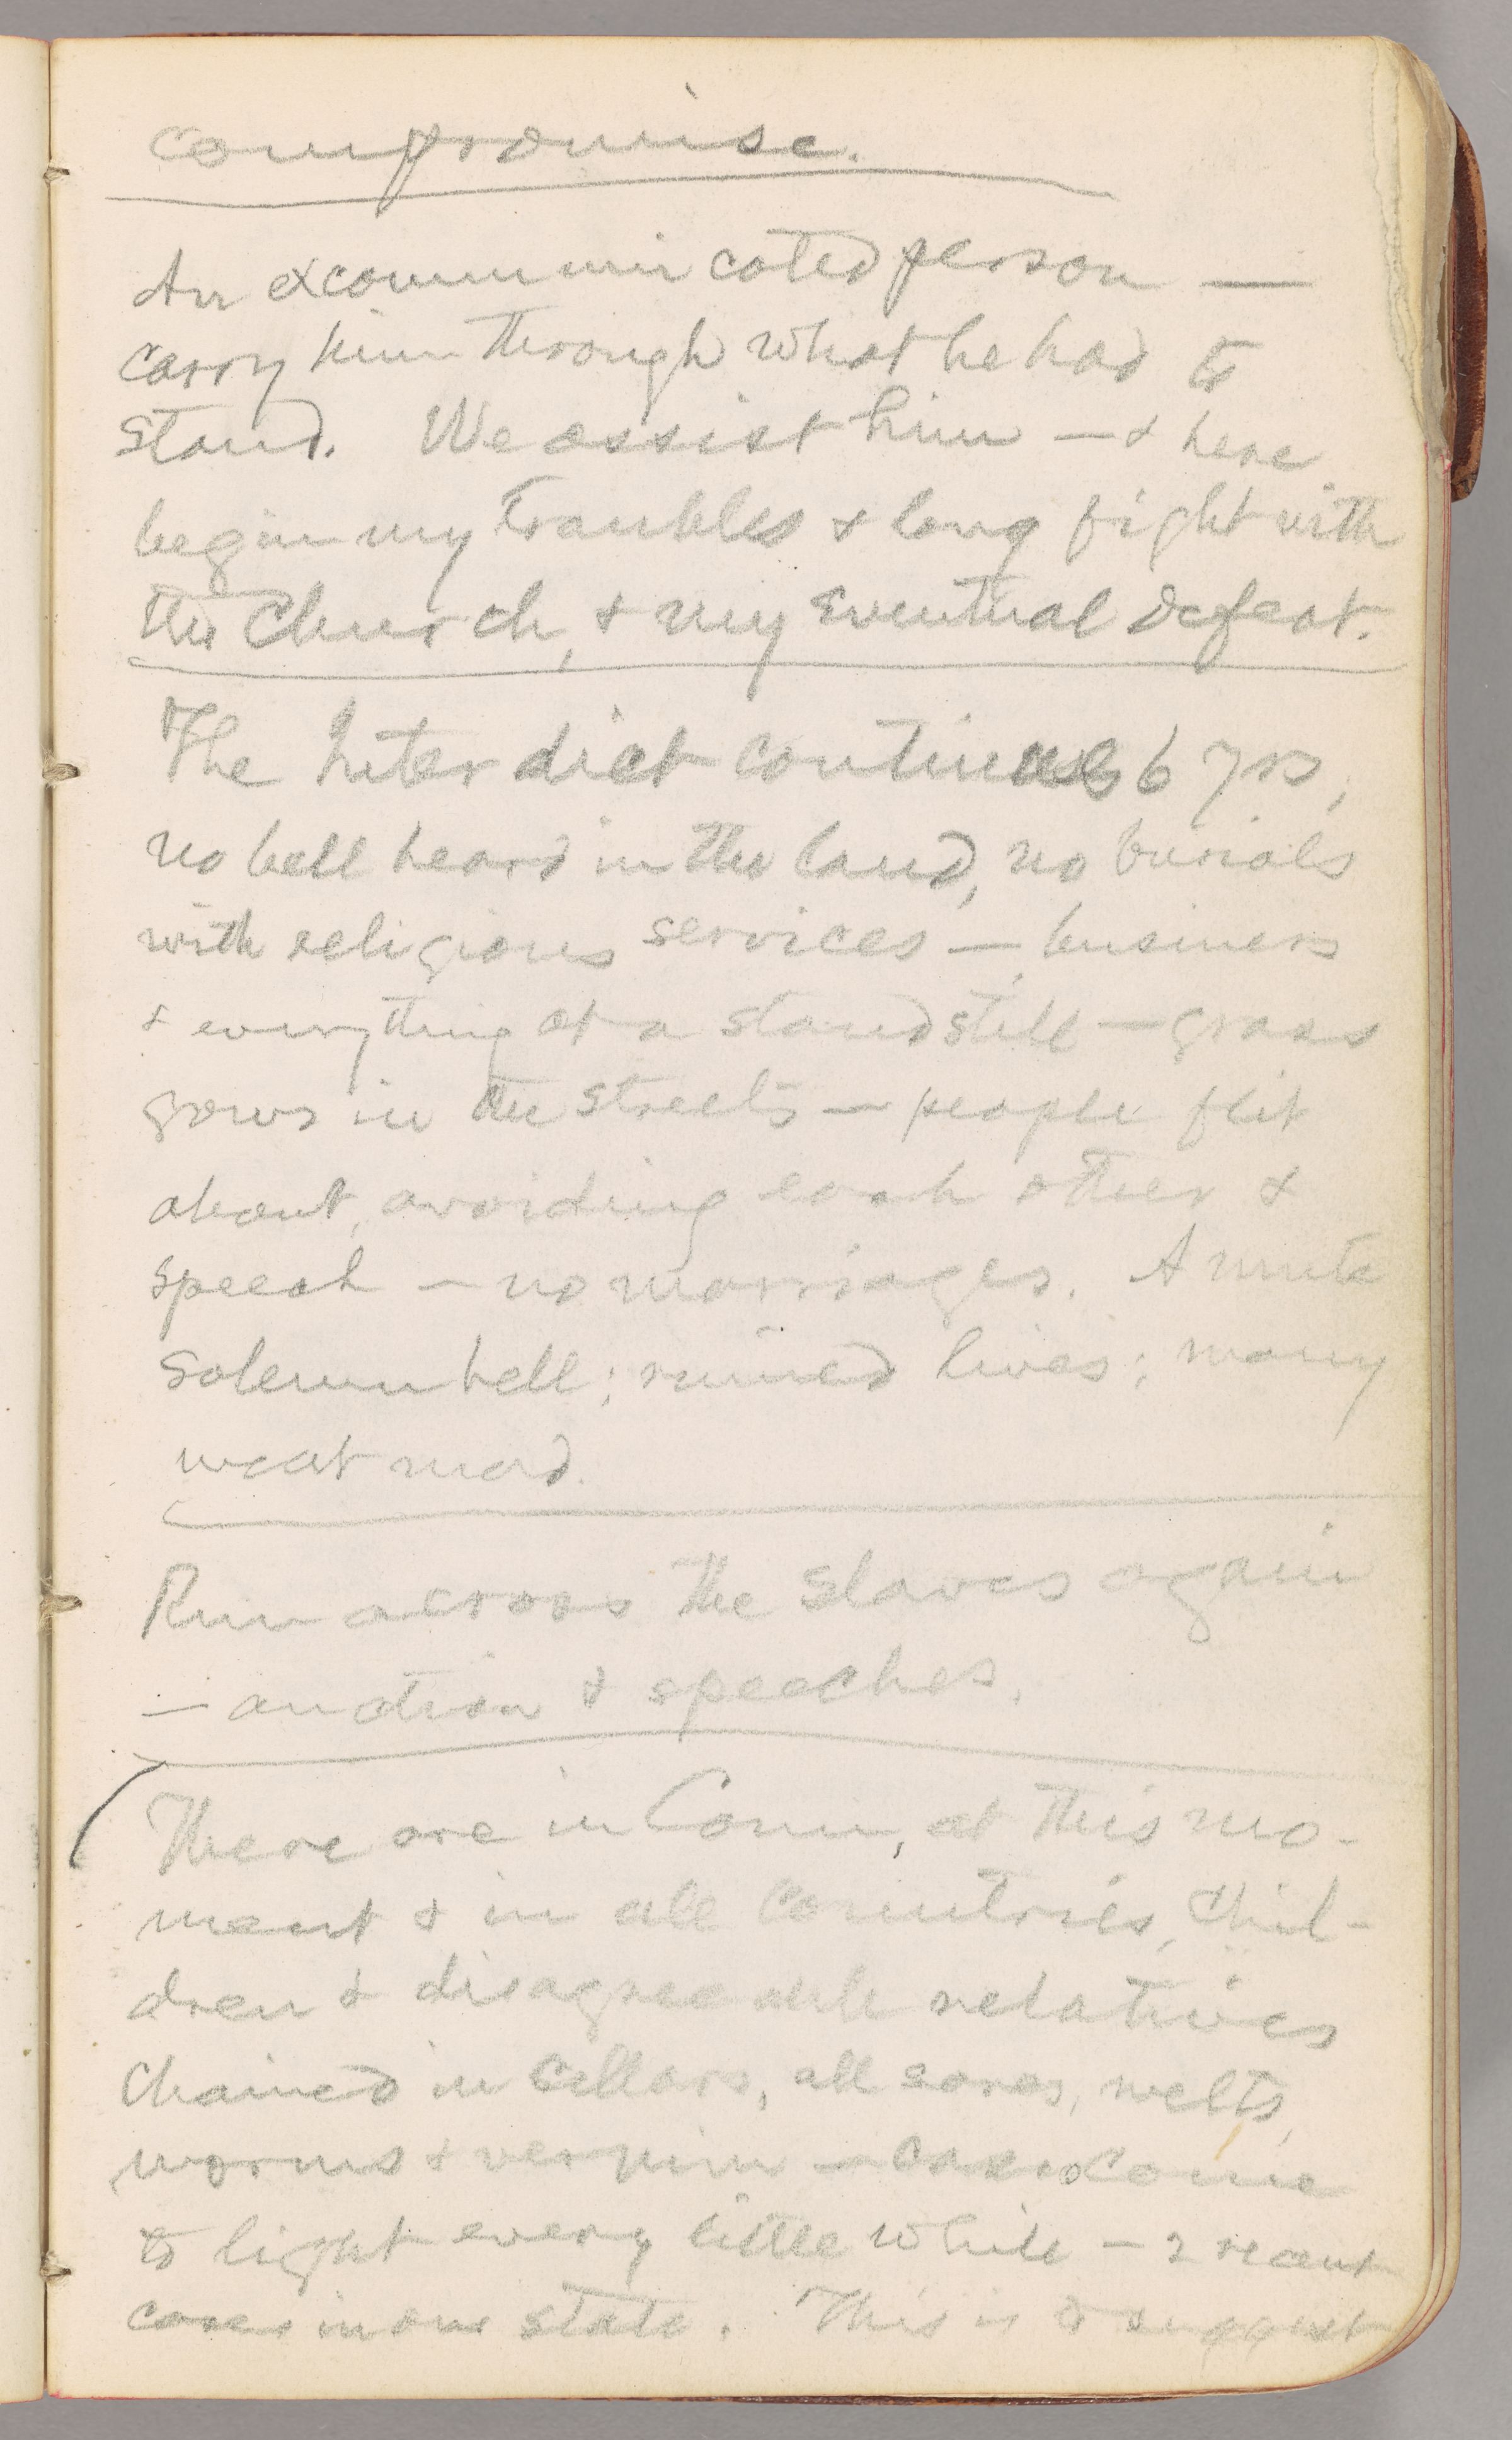 compromise.
An excommunicated person —
carry him through what he had to
stand. We assist him — & here
begin my troubles & long fight with
the Church, & my eventual defeat.
The Interdict continues 6 yrs,
no bell heard in the land, no burials
with religious services — business
& everything at a standstill — grass
grows in the streets — people flit
about, avoiding each other &
speech — no marriages. A mute
solemn hell; ruined lives; many
went mad.
Run across the slaves again
— auction & speeches.
There are in Conn, at this mo-
ment & in all countries, chil-
dren & disagreeable relatives
chained in cellars, all sores, welts,
worms & vermin — cases come
to light every little while — 2 recent
cases in our state. This is to suggest